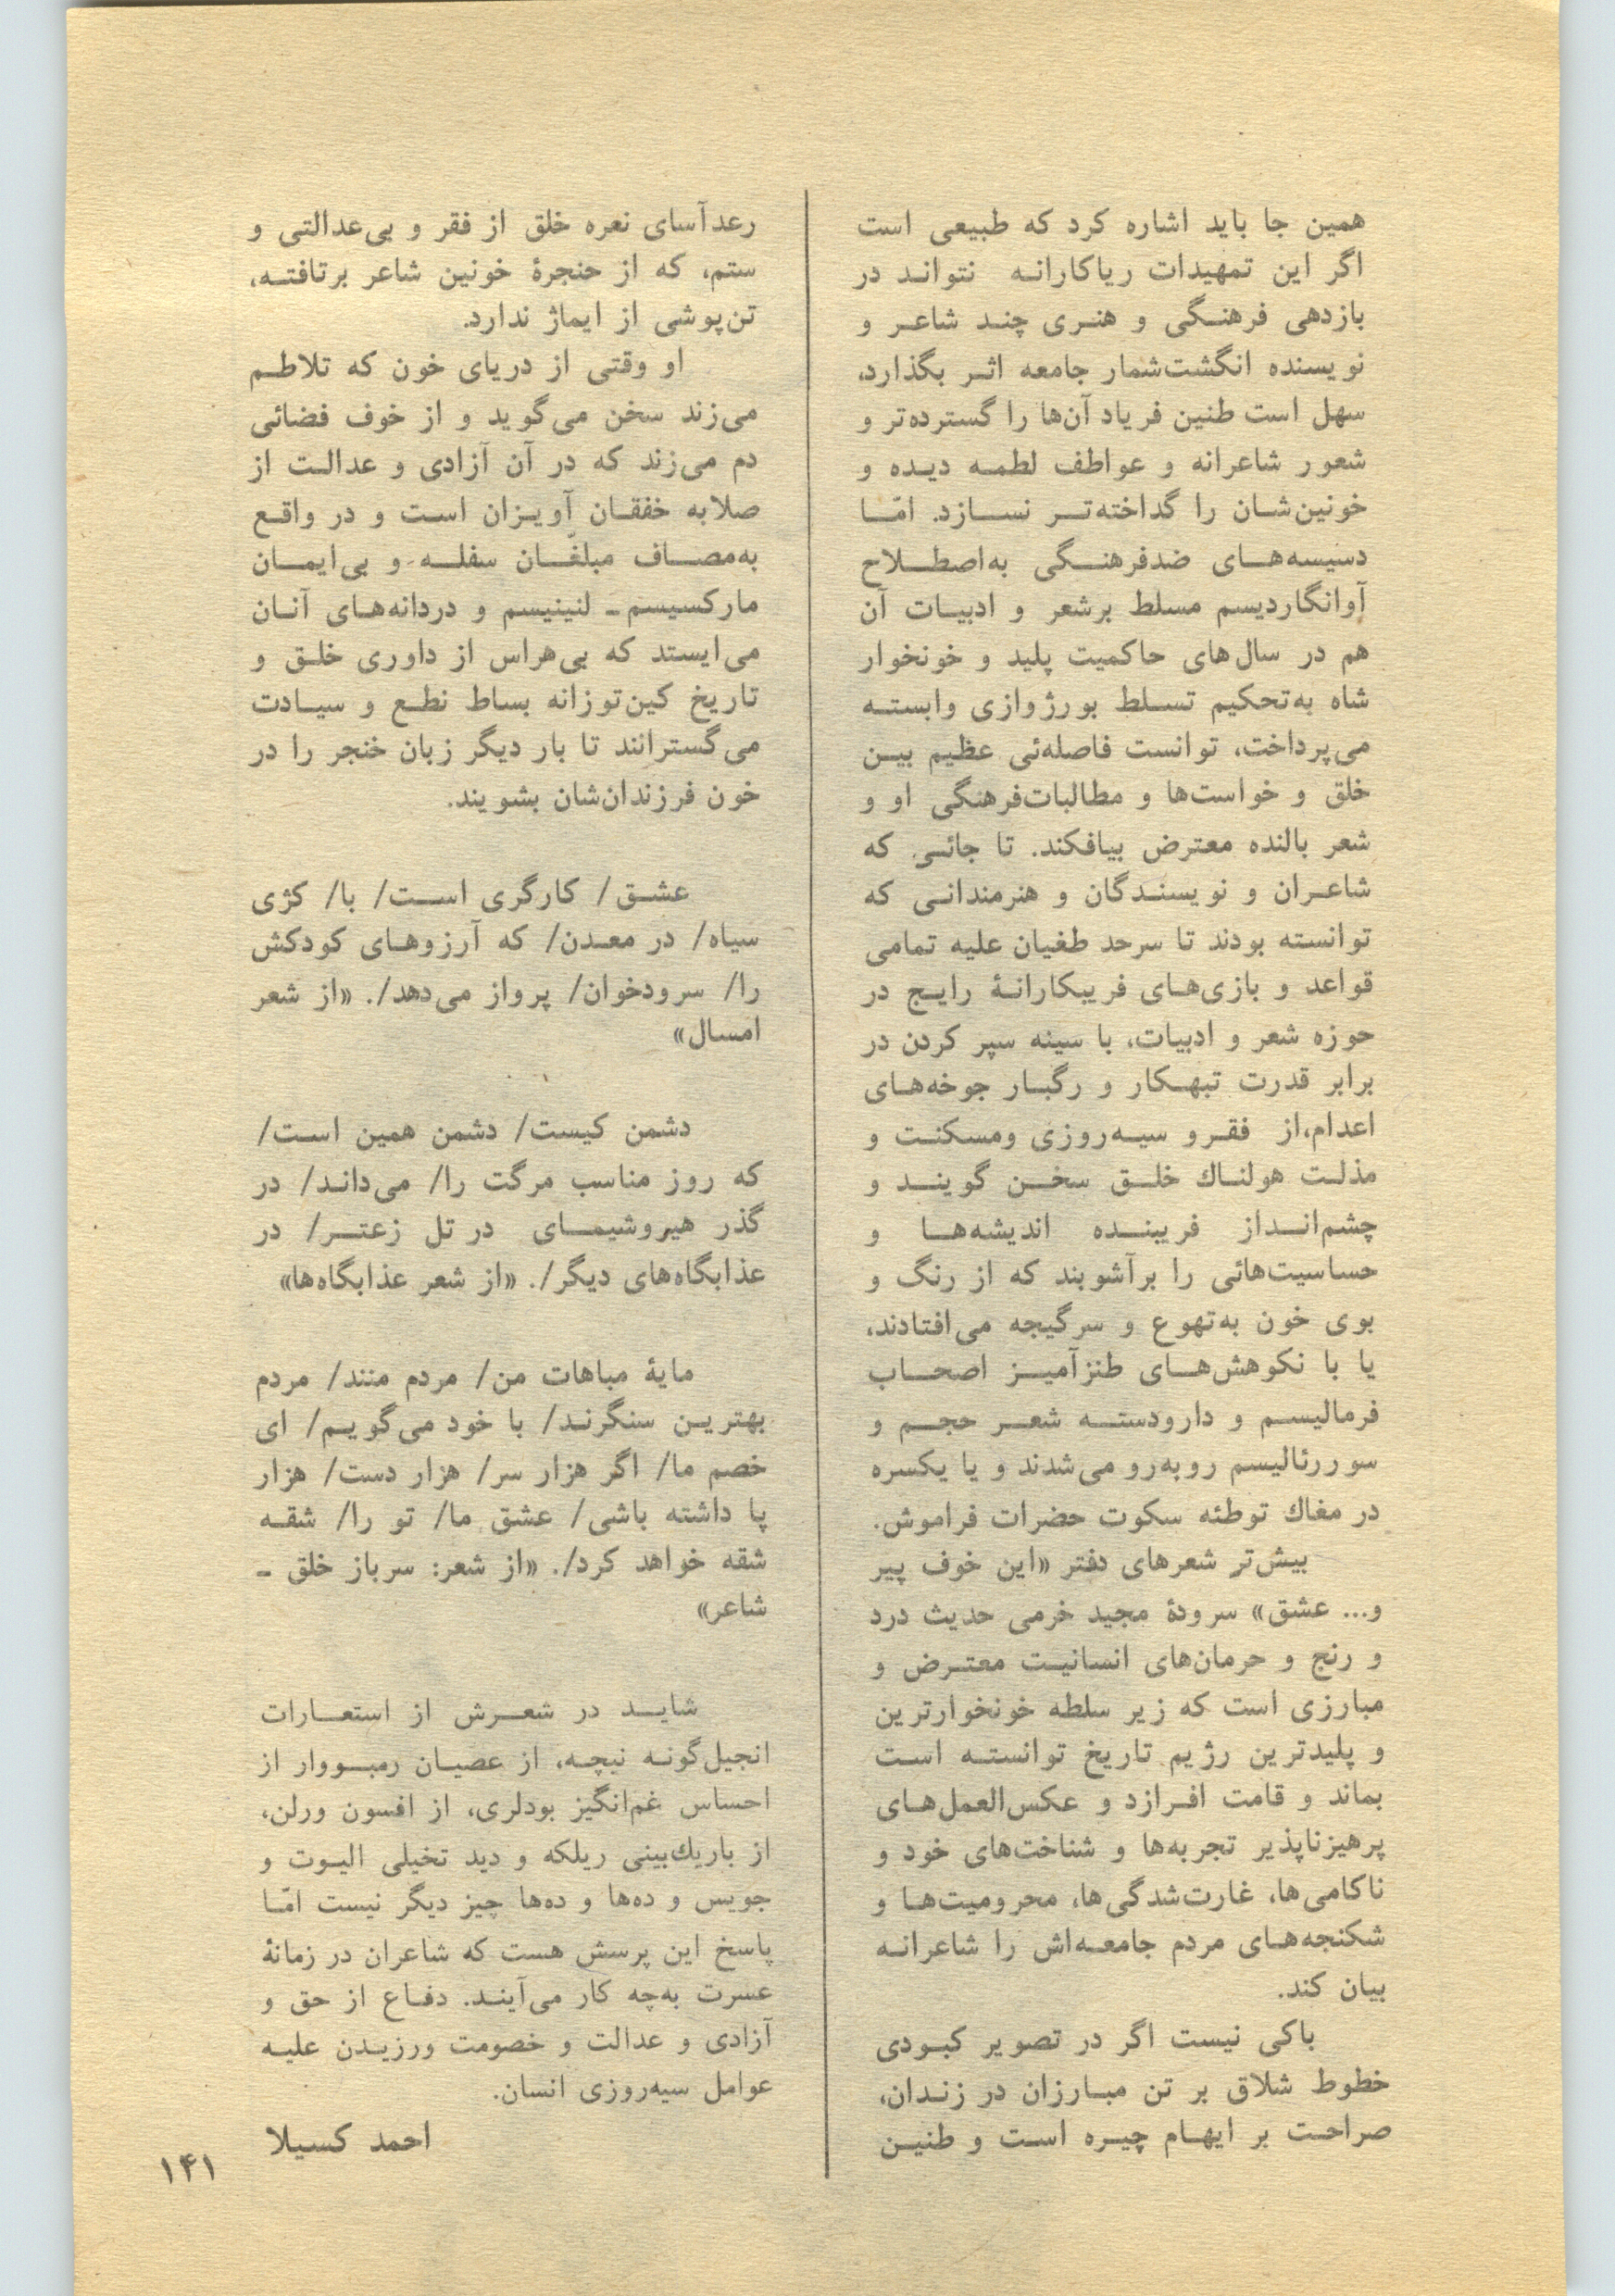 همین جا باید اشاره کرد که طبیعی است
اگر این تمهیدات ریاکارانه نتواند در
بازدهی فرهنگی و هنری چند شاعر و
نویسنده انگشت‌شمار جامعه اثر بگذارد،
سهل است طنین فریاد آن‌ها را گسترده‌تر و
شعور شاعرانه و عواطف لطمه دیده و
خونین‌شان را گداخته‌تر نسازد. امّا
دسیسه‌های ضدفرهنگی به‌اصطلاح
آوانگاردیسم مسلط برشعر و ادبیات آن
هم در سال‌های حاکمیت پلید و خونخوار
شاه به‌تحکیم تسلط بورژوازی وابسته
می‌پرداخت، توانست فاصله‌ئی عظیم بین
خلق و خواست‌ها و مطالبات‌فرهنگی او و
شعر بالنده معترض بیافکند. تا جائی که
شاعران و نویسندگان و هنرمندانی که
توانسته بودند تا سرحد طغیان علیه تمامی
قواعد و بازی‌های فریبکارانهٔ رایج در
حوزه شعر و ادبیات، با سینه سپر کردن در
برابر قدرت تبهکار و رگبار جوخه‌های
اعدام،از فقرو سیه‌روزی ومسکنت و
مذلت هولناك خلق سخن گویند و
چشم‌انداز فریبنده اندیشه‌ها و
حساسیت‌هائی را برآشوبند که از رنگ و
بوی خون به‌تهوع و سرگیجه می‌افتادند،
یا با نکوهش‌های طنزآمیز اصحاب
فرمالیسم و دارودسته شعر حجم و
سوررئالیسم روبه‌رو می‌شدند و یا یکسره
در مغاك توطئه سکوت حضرات فراموش.
بیش‌تر شعرهای دفتر «این خوف پیر
و... عشق» سرودهٔ مجید خرمی حدیث درد
و رنج و حرمان‌های انسانیت معترض و
مبارزی است که زیر سلطه خونخوارترین
و پلیدترین رژیم تاریخ توانسته است
بماند و قامت افرازد و عکس‌العمل‌های
پرهیزناپذیر تجربه‌ها و شناخت‌های خود و
ناکامی‌ها، غارت‌شدگی‌ها، محرومیت‌ها و
شکنجه‌های مردم جامعه‌اش را شاعرانه
بیان کند.
باکی نیست اگر در تصویر کبودی
خطوط شلاق بر تن مبارزان در زندان،
صراحت بر ایهام چیره است و طنین
رعدآسای نعره خلق از فقر و بی‌عدالتی و
ستم، که از حنجرهٔ خونین شاعر برتافته،
تن‌پوشی از ایماژ ندارد.
او وقتی از دریای خون که تلاطم
می‌زند سخن می‌گوید و از خوف فضائی
دم می‌زند که در آن آزادی و عدالت از
صلابه خفقان آویزان است و در واقع
به‌مصاف مبلغّان سفله و بی‌ایمان
مارکسیسم- لنینیسم و دردانه‌های آنان
می‌ایستد که بی‌هراس از داوری خلق و
تاریخ کین‌توزانه بساط نطع و سیادت
می‌گسترانند تا بار دیگر زبان خنجر را در
خون فرزندان‌شان بشویند.
عشق/ کارگری است/ با/ کژی
سیاه/ در معدن/ که آرزوهای کودکش
را/ سرودخوان/ پرواز می‌دهد/. «از شعر
امسال»
دشمن کیست/ دشمن همین است/
که روز مناسب مرگت را/ می‌داند/ در
گذر هیروشیمای در تل زعتر/ در
عذابگاه‌های دیگر/. «از شعر عذابگاه‌ها»
مایهٔ مباهات من/ مردم منند/ مردم
بهترین سنگرند/ با خود می‌گویم/ ای
خصم ما/ اگر هزار سر/ هزار دست/ هزار
پا داشته باشی/ عشق ما/ تو را/ شقه
شقه خواهد کرد/. «از شعر: سرباز خلق -
شاعر»
شاید در شعرش از استعارات
انجیل‌گونه نیچه، از عصیان رمبووار از
احساس غم‌انگیز بودلری، از افسون ورلن،
از باریك‌بینی ریلکه و دید تخیلی الیوت و
جویس و ده‌ها و ده‌ها چیز دیگر نیست امّا
پاسخ این پرسش هست که شاعران در زمانهٔ
عسرت به‌چه کار می‌آیند. دفاع از حق و
آزادی و عدالت و خصومت ورزیدن علیه
عوامل سیه‌روزی انسان.
احمد کسیلا
۱۴۱